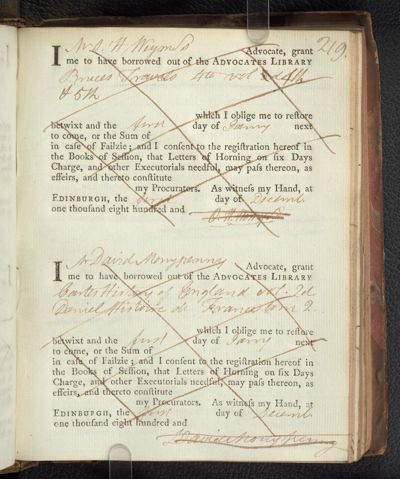 219.
I Advocate, grant
me to have borrowed out of the ADVOCATES LIBRARY
Bruces Travels 4to vol 2d 4th
& 5th
which I oblige me to reſtore
betwixt and the first day of Janry next
to come, or the Sum of
in caſe of Failzie; and I conſent to the regiſtration hereof in
the Books of Seſſion, that Letters of Horning on ſix Days
Charge, and other Executorials needful, may paſs thereon, as
effeirs, and thereto conſtitute
my Procurators. As witneſs my Hand, at
EDINBURGH, the first day of Decemb
one thouſand eight hundred and
I David Monypenny Advocate, grant
me to have borrowed out of the ADVOCATES LIBRARY
Cartes History of England vol. 2d
Daniel Histoire de France tom 2.
which I oblige me to reſtore
betwixt and the first day of Janry next
to come, or the Sum of
in caſe of Failzie; and I conſent to the regiſtration hereof in
the Books of Seſſion, that Letters of Horning on ſix Days
Charge, and other Executorials needful, may paſs thereon, as
effeirs, and thereto conſtitute
my Procurators. As witneſs my Hand, at
EDINBURGH, the first day of Decemb
one thouſand eight hundred and
David Monypenny